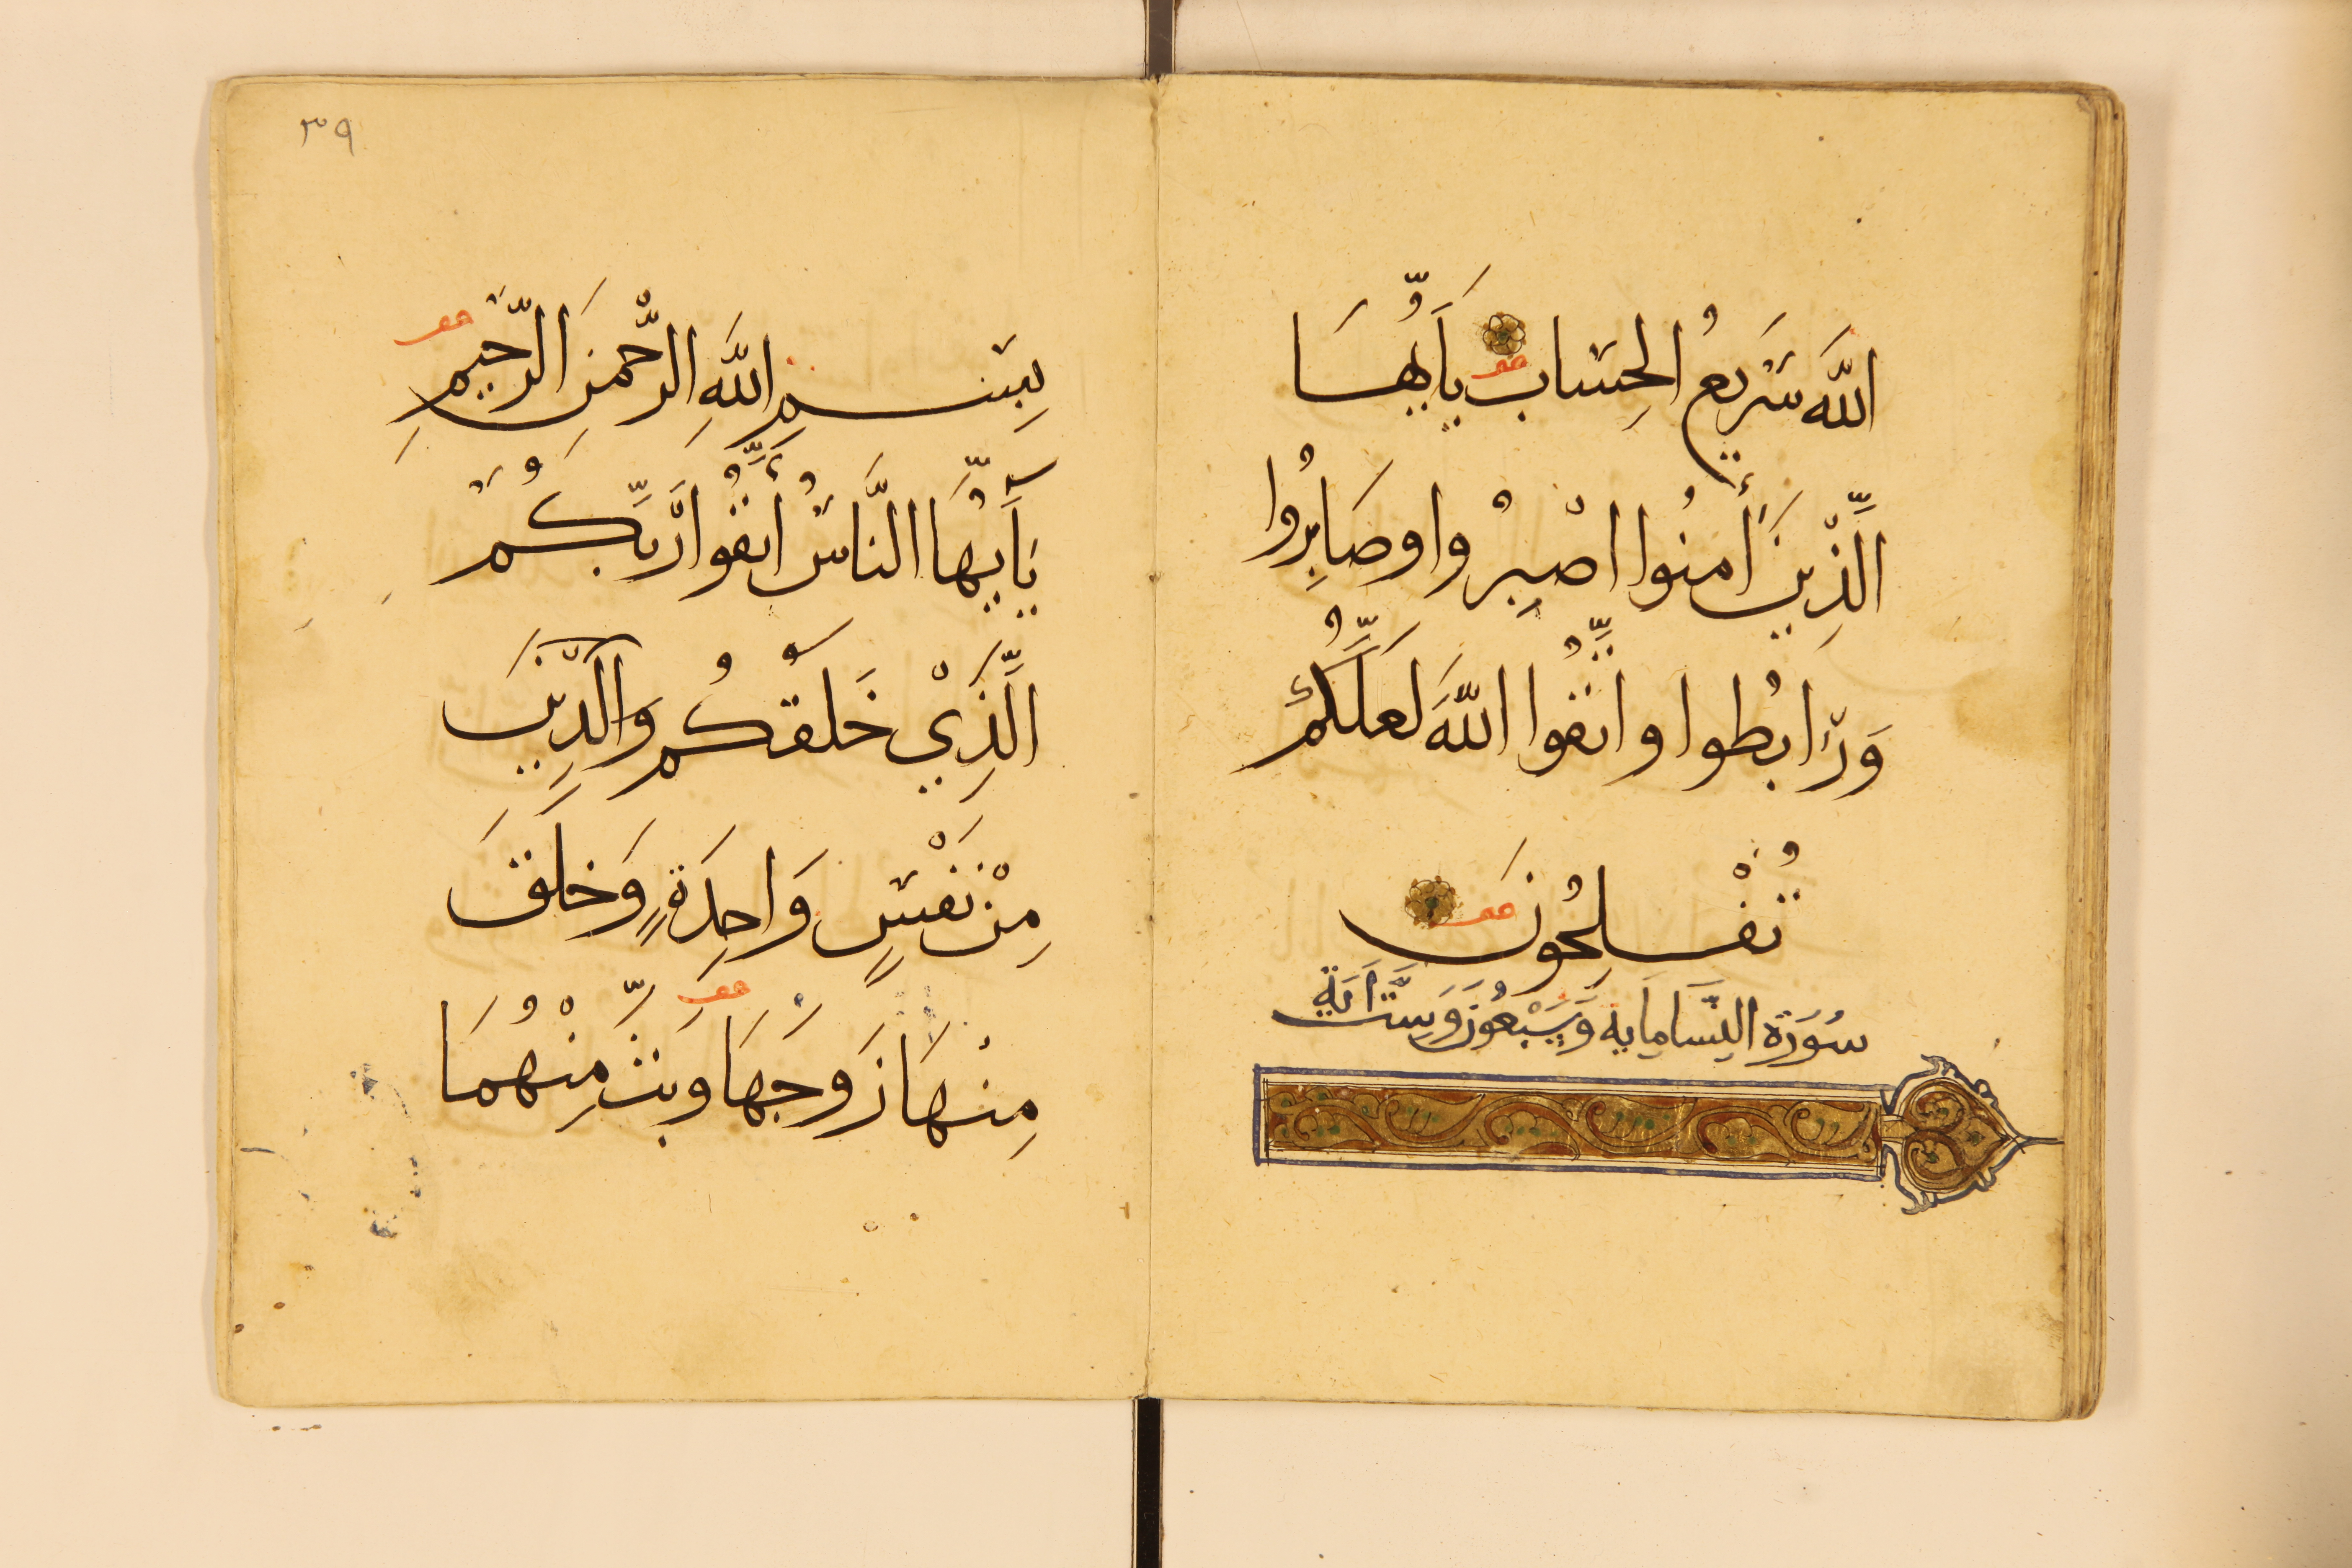 اللَّهَ سَرِيعُ الْحِسَابِ يَا أَيُّهَا
الَّذِينَ أَمَنُوا اصْبِرُوا وصَابِرُوا
وَرَابِطُوا واتَّقُوا اللَّهَ لَعَلَّكُمْ
تُفْلِحُونَ
سُورَة النِّسَا مِايه وَسَبْعُونَ وَسِتّ اَيَةٍ
٣٩
بِسْمِ اللَّهِ الرَّحْمَنِ الرَّحِيمِ
يَآأَيُّهَا النَّاسُ اتَّقُوا رَبَّكُمُ
الَّذِيْ خَلَقَكُم وَالَّذِينَ
مِنْ نَفْسٍ وَاحِدَةٍ وَخَلَقَ
مِنْهَا زَوْجَهَا وبَثَّ مِنْهُمَا